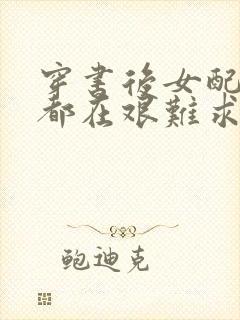 穿書後女配
都在艱難求
鲍迪克